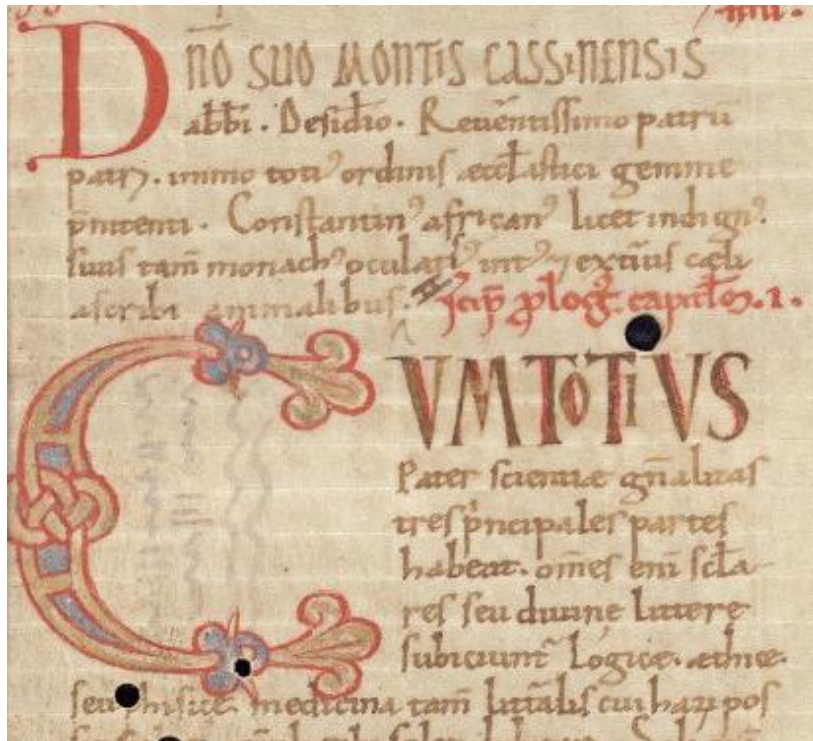 DNO SUO MONTIS CASSINENSIS
abbi. Desidio. Reuentissimo patrũ
patri. immo toti' ordinis æcclastici gemme
p̄nitenti. Constantin' african' licet indign'.
suus tam̄ monach' oculatis int' ⁊ exti'us cæli
ascribi animalibus. Incip̄ p̄log'. capitłoꝝ. 1.
CUM TOTIUS
Pater scientiæ gn̄alitas
tres p'ncipales partes
habeat. om̄es eni scła
res seu diuine littere
subiciunt' logice. æthice.
seu phisice. medicina tam̄ litt̄alis cui hanc pos